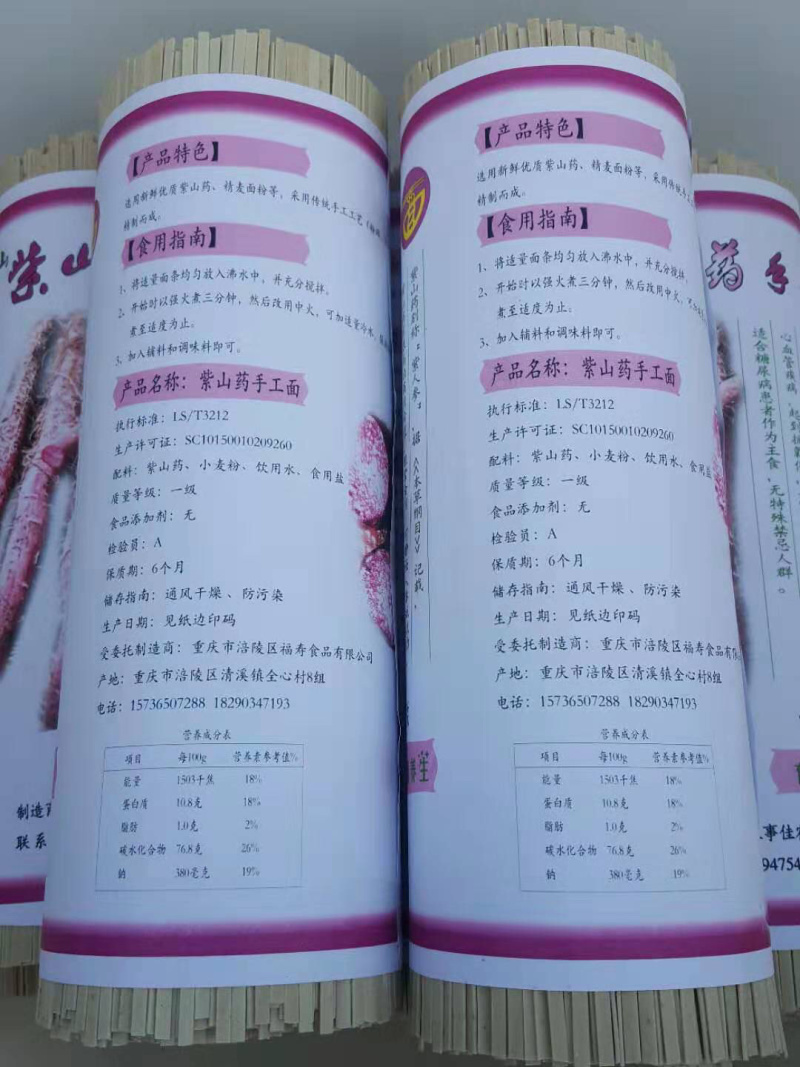 紫山
制造商
联系
【产品特色】
选用新鲜优质紫山药、精麦面粉等，采用传统手工工艺
精制而成。
【食用指南】
1、将适量面条均匀放入沸水中，并充分搅拌。
2、开始时以强火煮三分钟，然后改用中火，可加适量冷水，
煮至适度为止。
3、加入辅料和调味料即可。
产品名称：紫山药手工面
执行标准：LS/T3212
生产许可证：SC10150010209260
配料：紫山药、小麦粉、饮用水、食用盐
质量等级：一级
食品添加剂：无
检验员：A
保质期：6个月
储存指南：通风干燥、防污染
生产日期：见纸边印码
受委托制造商：重庆市涪陵区福寿食品有限公司
产地：重庆市涪陵区清溪镇全心村8组
电话：15736507288 18290347193
营养成分表
项目 每100g 营养素参考值%
能量 1503千焦 18%
蛋白质 10.8克 18%
脂肪 1.0克 2%
碳水化合物 76.8克 26%
钠 380毫克 19%
紫山药别称：紫人参。据《本草纲目》记载，
养生
【产品特色】
选用新鲜优质紫山药、精麦面粉等，采用传统手
精制而成。
【食用指南】
1、将适量面条均匀放入沸水中，并充分搅拌。
2、开始时以强火煮三分钟，然后改用中火，可加适量
煮至适度为止。
3、加入辅料和调味料即可。
产品名称：紫山药手工面
执行标准：LS/T3212
生产许可证：SC10150010209260
配料：紫山药、小麦粉、饮用水、食用盐
质量等级：一级
食品添加剂：无
检验员：A
保质期：6个月
储存指南：通风干燥、防污染
生产日期：见纸边印码
受委托制造商：重庆市涪陵区福寿食品有限
产地：重庆市涪陵区清溪镇全心村8组
电话：15736507288 18290347193
营养成分表
项目 每100g 营养素参考值%
能量 1503千焦 18%
蛋白质 10.8克 18%
脂肪 1.0克 2%
碳水化合物 76.8克 26%
钠 380毫克 19%
药手
心血管疾病，起到
适合糖尿病患者作为主食，无特殊禁忌人群。
事佳
94754